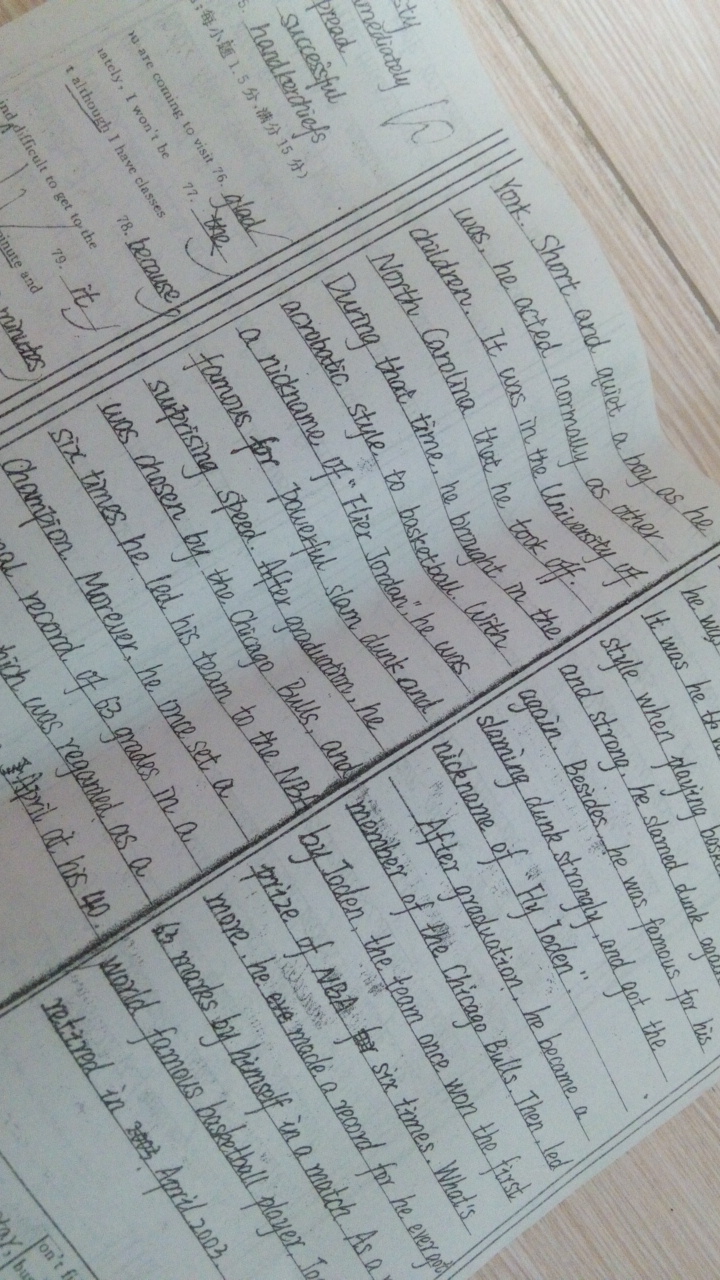 sty
mmediately
pread
5. successful
handkerchiefs
小题 1.5 分,满分 15 分)
are coming to visit 76. glad
ately, I won't be 77. the
although I have classes
78. because
ind difficult to get to the
79. it
minute and
minutes
York. Short and quiet a boy as he
was, he acted normally as other
children. It was in the University of
North Carolina that he took off.
During that time, he brought in the
acrobatic style to basketball. With
a nickname of "Flier Jordan," he was
famous for powerful slam dunk and
surprising speed. After graduation, he
was chosen by the Chicago Bulls, and
six times he led his team to the NBA
champion. Morever, he once set a
record of 63 grades in a
was regarded as a
April at his 40
he
It was he
style when playing
and strong, he slamed dunk
again. Besides, he was famous for his
slaming dunk strongly, and got the
nickname of "Fly Joden."
After graduation, he became a
member of the Chicago Bulls. Then, led
by Joden, the team once won the first
prize of NBA for six times. What's
more, he made a record for he
63 marks by himself in a match. As a
world famous basketball player,
retired in April 2003.
on't